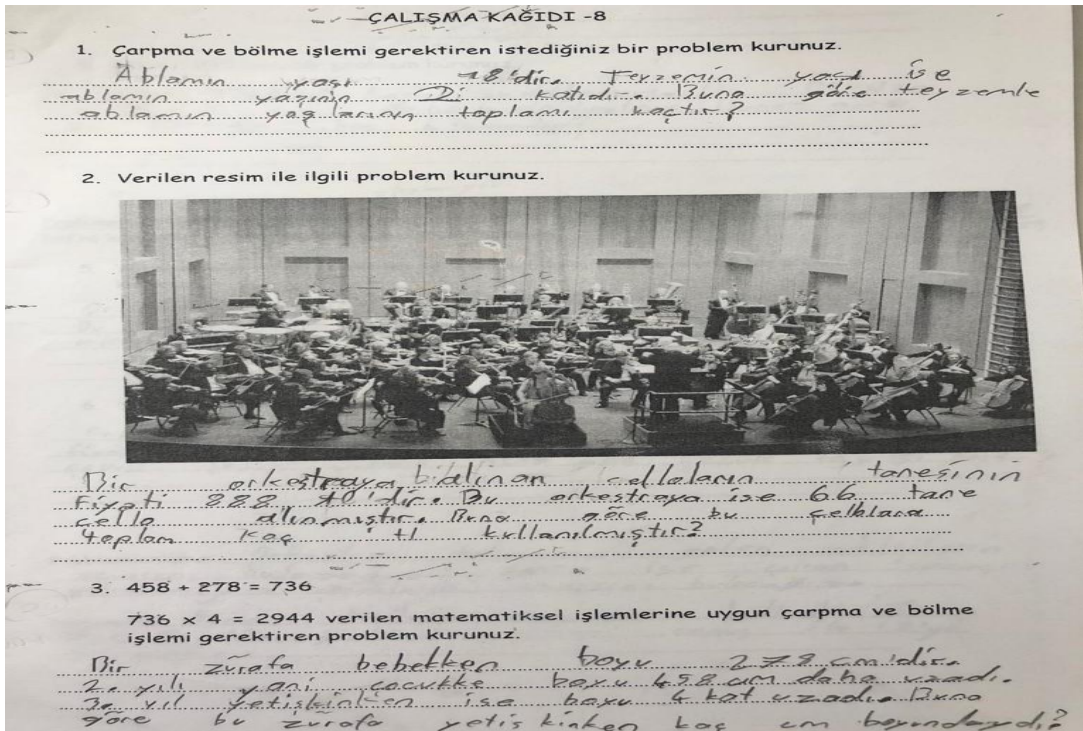 ÇALIŞMA KAĞIDI -8
1. Çarpma ve bölme işlemi gerektiren istediğiniz bir problem kurunuz.
Ablamın yaşı 18'dir. Teyzemin yaşı ise
ablamın yaşının 2 katıdır. Buna göre teyzemle
ablamın yaşlarının toplamı kaçtır?
2. Verilen resim ile ilgili problem kurunuz.
Bir orkestraya alınan celloların tanesinin
Fiyatı 888 dir. Bu orkestraya ise 66 tane
cello alınmıştır. Buna göre bu çellolara
toplam kaç tl kullanılmıştır?
3. 458 + 278 = 736
736 x 4 = 2944 verilen matematiksel işlemlerine uygun çarpma ve bölme
işlemi gerektiren problem kurunuz.
Bir zürafa bebekken boyu 278 cm'dir.
2. yılı yani çocukke boyu 458 cm daha uzadı.
3. yıl yetişkinken ise boyu 4 kat uzadı. Buna
göre bu zürafa yetişkinken kaç cm boyundaydı?